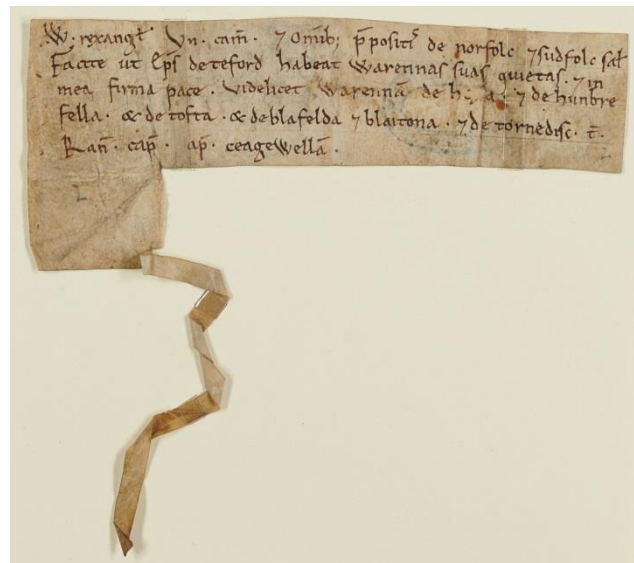 W· rex angł Vn· cam̄· ⁊ Om̄ib; p̄positis de norfolc ⁊ sudfolc sał
Facite ut ep̄s de teford habeat Warennas suas quietas· ⁊ in
mea firma pace· Videlicet Warennā de ⁊ de hunbre
fella· & de tofta· & de blafelda ⁊ blaitona· ⁊ de tornedisc· t̄·
Ran̄· cap̄· ap̄· ceagewellā·